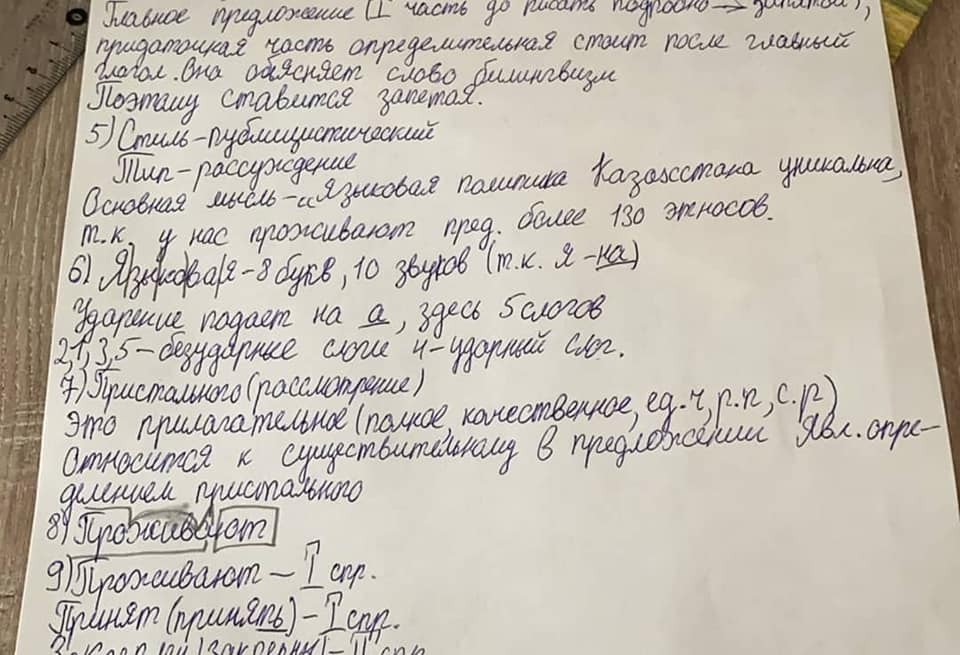 Главное предложение (I часть до писать подробно → запятой),
придаточная часть определительная стоит после главный
глагол. Она объясняет слово билингвизм
Поэтому ставится запетая.
5) Стиль-публицистический
Тип-рассуждение
Основная мысль-„Языковая политика Казахстана уникальна,
т.к. у нас проживают пред. более 130 этносов.
6) Язы|ко|ва|я-8 букв, 10 звуков (т.к. я-на)
Ударение подает на а, здесь 5 слогов
2,1,3,5-безударные слоги 4-ударный слог.
7) Пристального (рассмотрение)
Это прилагательное (полное, качественное, ед.ч, р.п, с.р)
Относится к существительному в предложении явл. опре-
делением пристального
8) Проживают
9) Проживают – I спр.
Принят (принять) – I спр.